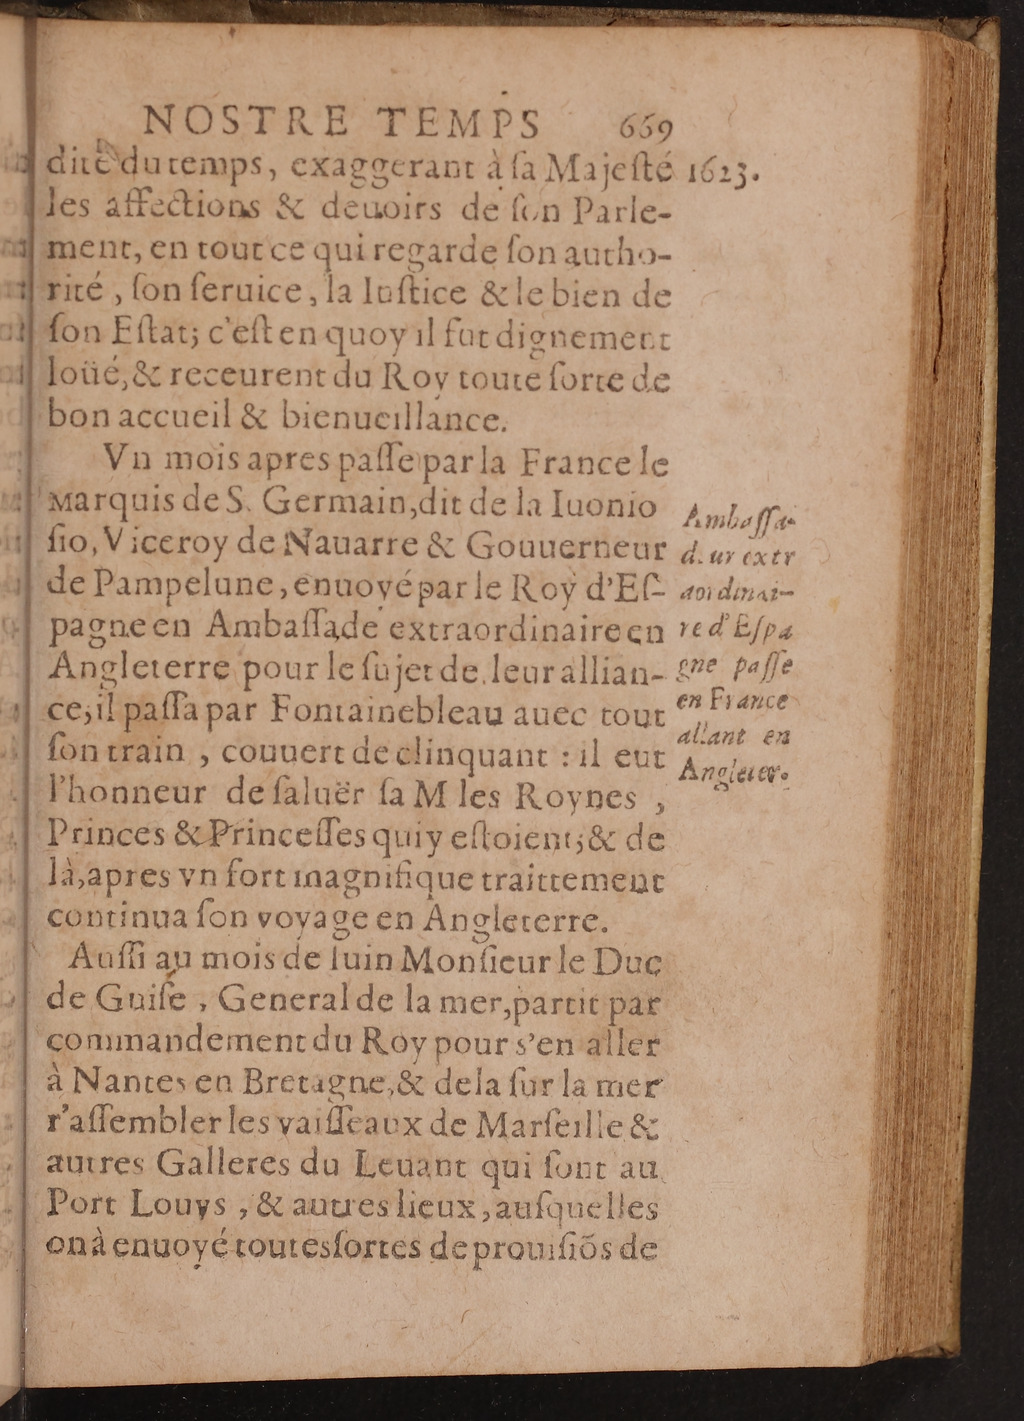 NOSTRE TEMPS 659
dité du temps, exaggerant à ſa Majeſté 1623.
les affections & deuoirs de ſon Parle-
ment, en tout ce qui regarde ſon autho-
rité, ſon ſeruice, la Iuſtice & le bien de
ſon Eſtat; c'eſt en quoy il fut dignement
loüé, & receurent du Roy toute ſorte de
bon accueil & bienueillance.
Vn mois apres paſſe par la France le
Marquis de S. Germain, dit de la Iuonio
ſio, Viceroy de Nauarre & Gouuerneur
de Pampelune, enuoyé par le Roy d'Eſ-
pagne en Ambaſſade extraordinaire en
Angleterre pour le ſujet de leur allian-
ce; il paſſa par Fontainebleau auec tout
ſon train, couuert de clinquant : il eut
l'honneur de ſaluër ſa M les Roynes,
Princes & Princeſſes qui y eſtoient; & de
là, apres vn fort magnifique traittement
continua ſon voyage en Angleterre.
Auſſi au mois de Iuin Monſieur le Duc
de Guiſe, General de la mer, partit par
commandement du Roy pour s'en aller
à Nantes en Bretagne, & dela ſur la mer
r'aſſembler les vaiſſeaux de Marſeille &
autres Galleres du Leuant qui ſont au
Port Louys, & autres lieux, auſquelles
on à enuoyé toutes ſortes de prouiſiōs de
Ambaſſa-
deur extr
aordinai-
re d'Eſpa
gne paſſe
en France
allant en
Angleter.